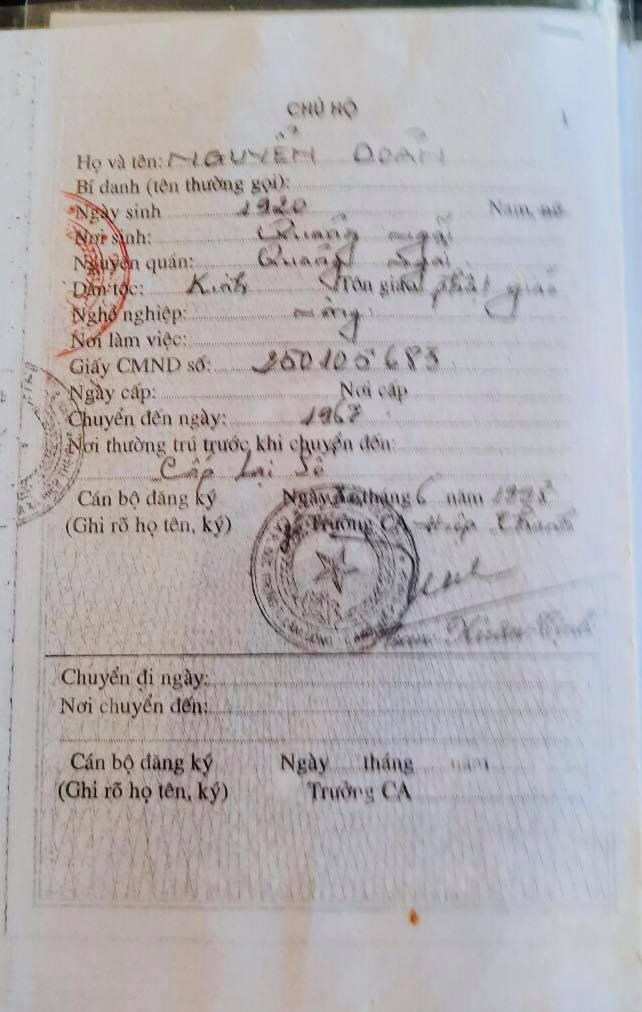 CHỦ HỘ
Họ và tên: NGUYỄN DOÃN
Bí danh (tên thường gọi):
Ngày sinh 1920 Nam, nữ
Nơi sinh: Quảng Ngãi
Nguyên quán: Quảng Ngãi
Dân tộc: Kinh Tôn giáo phật giáo
Nghề nghiệp: nông
Nơi làm việc:
Giấy CMND số: 250105683
Ngày cấp: Nơi cấp
Chuyển đến ngày: 1967
Nơi thường trú trước khi chuyển đến:
Cấp lại sổ
Cán bộ đăng ký Ngày tháng 6 năm
(Ghi rõ họ tên, ký) Trưởng CA Hiệp Thạnh
Chuyển đi ngày:
Nơi chuyển đến:
Cán bộ đăng ký Ngày tháng năm
(Ghi rõ họ tên, ký) Trưởng CA